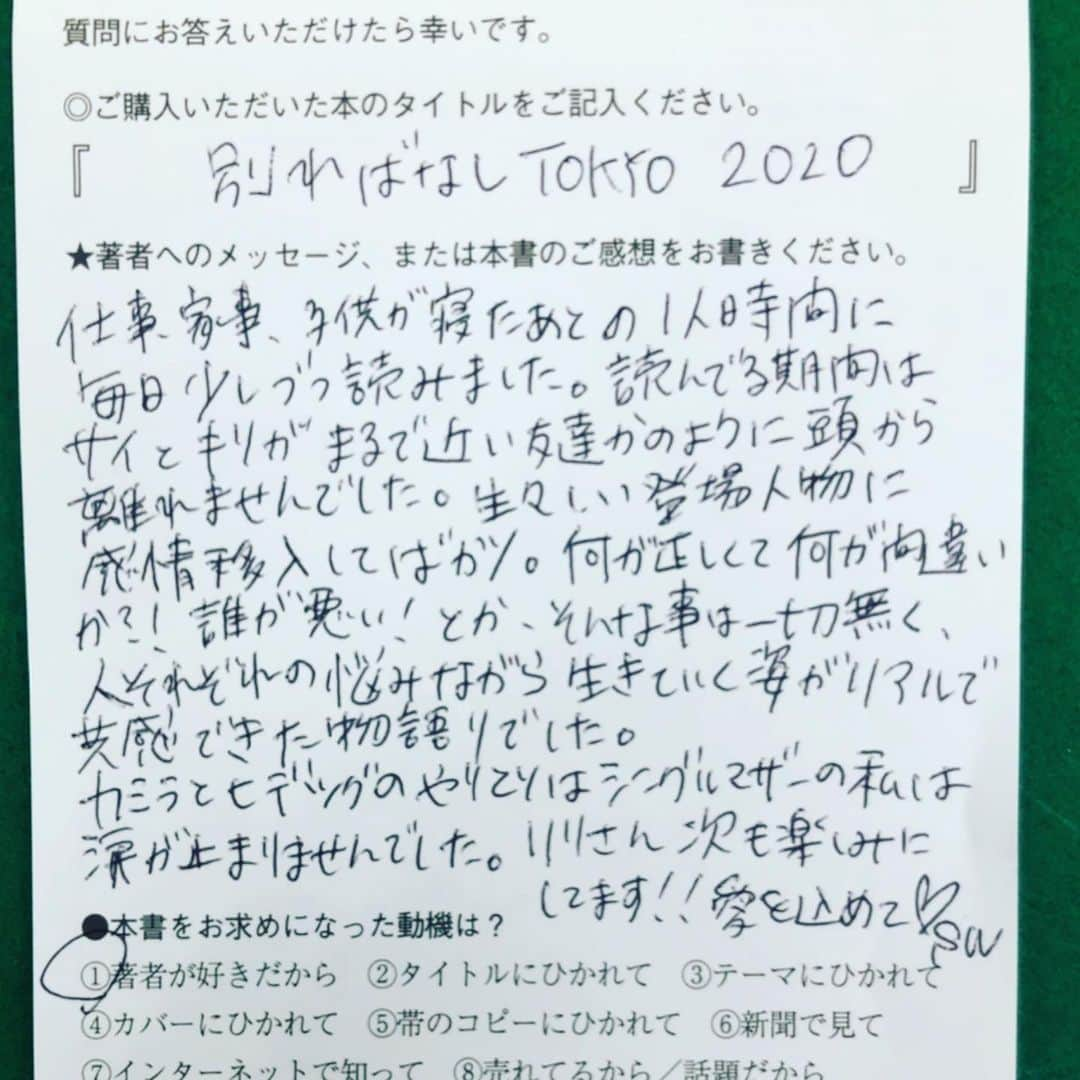 質問にお答えいただけたら幸いです。
◎ご購入いただいた本のタイトルをご記入ください。
『 別ればなしTOKYO 2020 』
★著者へのメッセージ、または本書のご感想をお書きください。
仕事、家事、子供が寝たあとの1人時間に
毎日少しづつ読みました。読んでる期間は
サイとキリがまるで近い友達かのように頭から
離れませんでした。生々しい登場人物に
感情移入してばかり。何が正しくて何が間違い
か?!誰が悪い!とか、そんな事は一切無く、
人それぞれの悩みながら生きていく姿がリアルで
共感できた物語りでした。
カミラとヒデヅグのやりとりはシングルマザーの私は
涙が止まりませんでした。リリさん次も楽しみに
してます!!愛を込めて♡
●本書をお求めになった動機は?
①著者が好きだから ②タイトルにひかれて ③テーマにひかれて
④カバーにひかれて ⑤帯のコピーにひかれて ⑥新聞で見て
⑦インターネットで知って ⑧売れてるから/話題だから